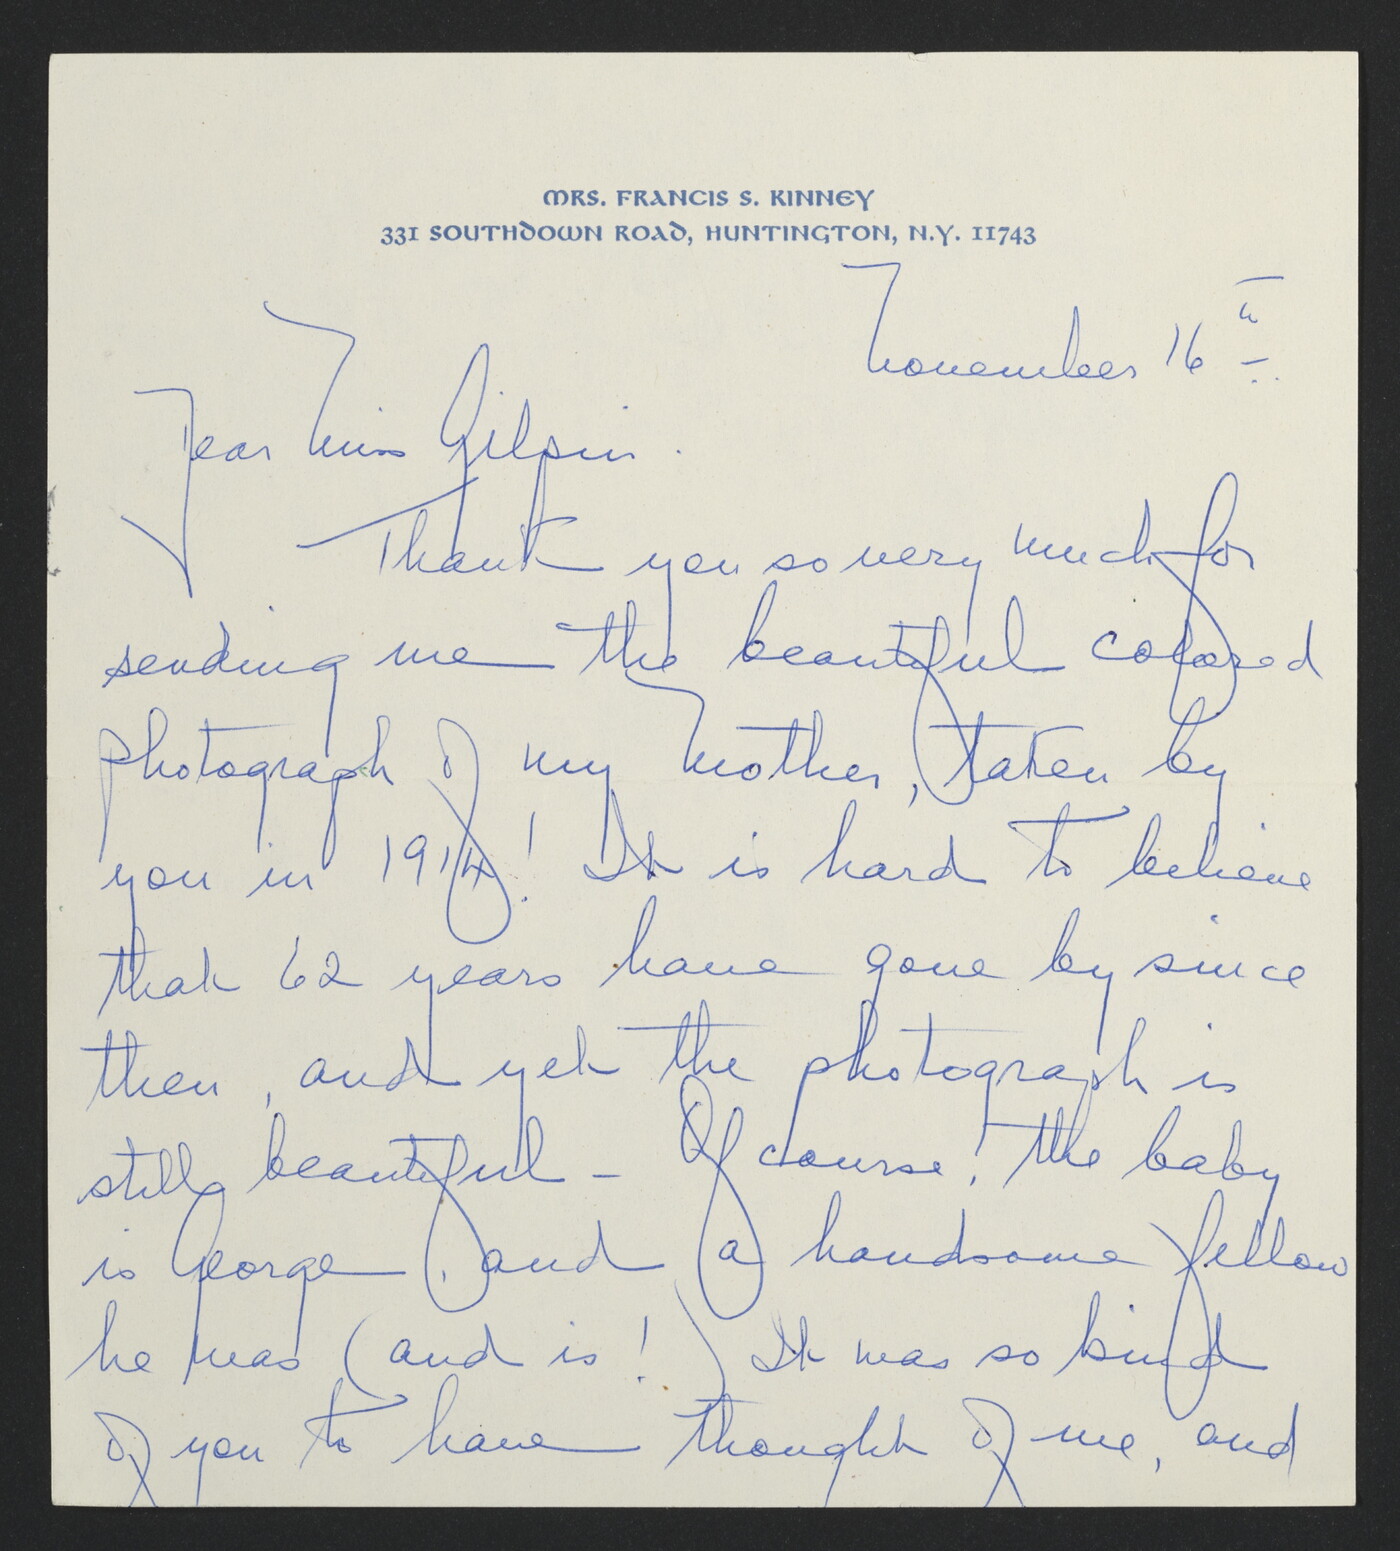 MRS. FRANCIS S. KINNEY
331 SOUTHDOWN ROAD, HUNTINGTON, N.Y. 11743
November 16th
Dear Miss Gilpin.
Thank you so very much for
sending me the beautiful colored
photograph of my Mother, taken by
you in 1914! It is hard to believe
that 62 years have gone by since
then, and yet the photograph is
still beautiful - Of course! The baby
is George, and a handsome fellow
he was (and is!) It was so kind
of you to have thought of me, and